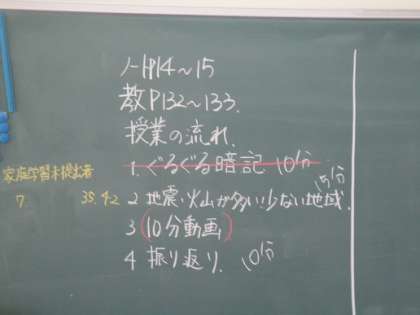 ノートP14～15
教P132～133.
授業の流れ.
1. ぐるぐる暗記 10分
家庭学習未提出者
7 35.42
2 地震・火山が多い・少ない地域. 15分
3 (10分動画)
4 振り返り. 10分